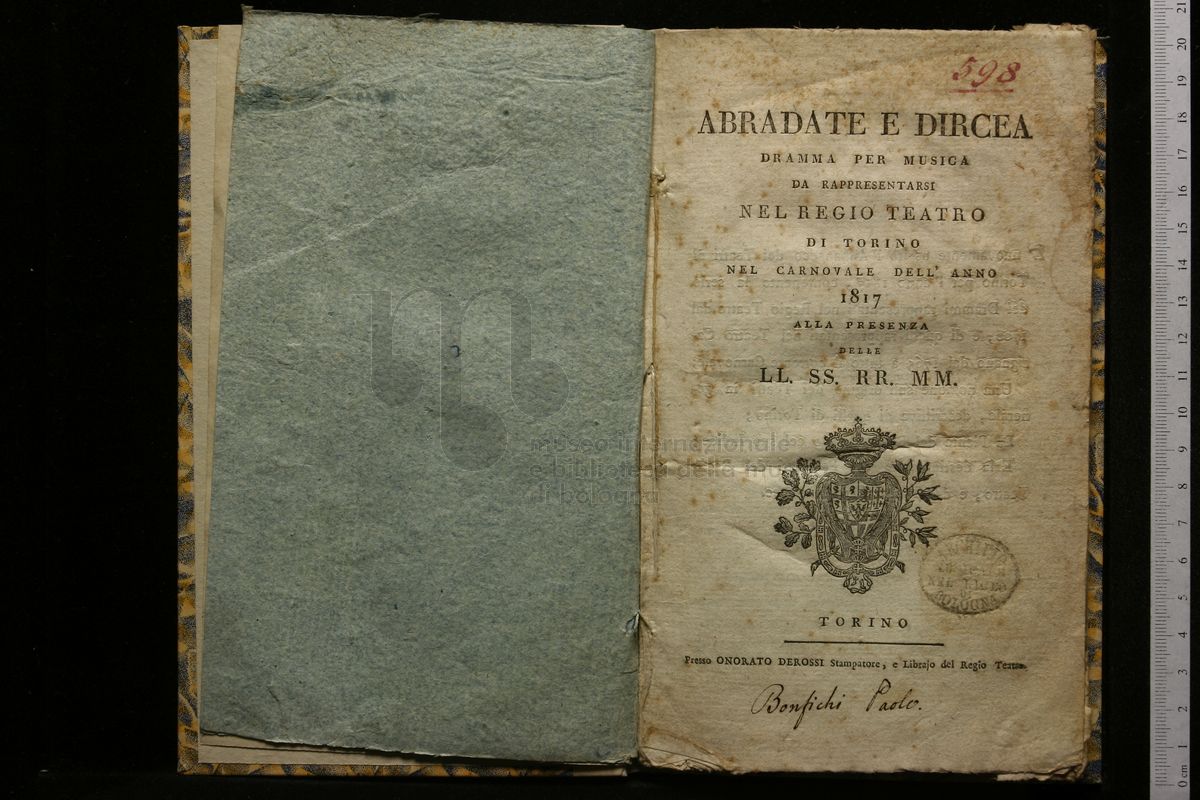 598
ABRADATE E DIRCEA
DRAMMA PER MUSICA
DA RAPPRESENTARSI
NEL REGIO TEATRO
DI TORINO
NEL CARNOVALE DELL' ANNO
1817
ALLA PRESENZA
DELLE
LL. SS. RR. MM.
museo internazionale
e biblioteca della musica
di bologna
BOLOGNA
TORINO
Presso ONORATO DEROSSI Stampatore, e Librajo del Regio Teatro.
Bonfichi Paolo.
21
20
19
18
17
16
15
14
13
12
11
10
9
8
7
6
5
4
3
2
1
0 cm